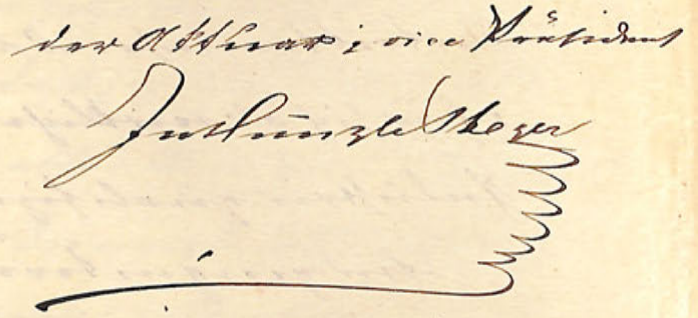 der Aktuar; vice Präsident
Jn Künzle Steger